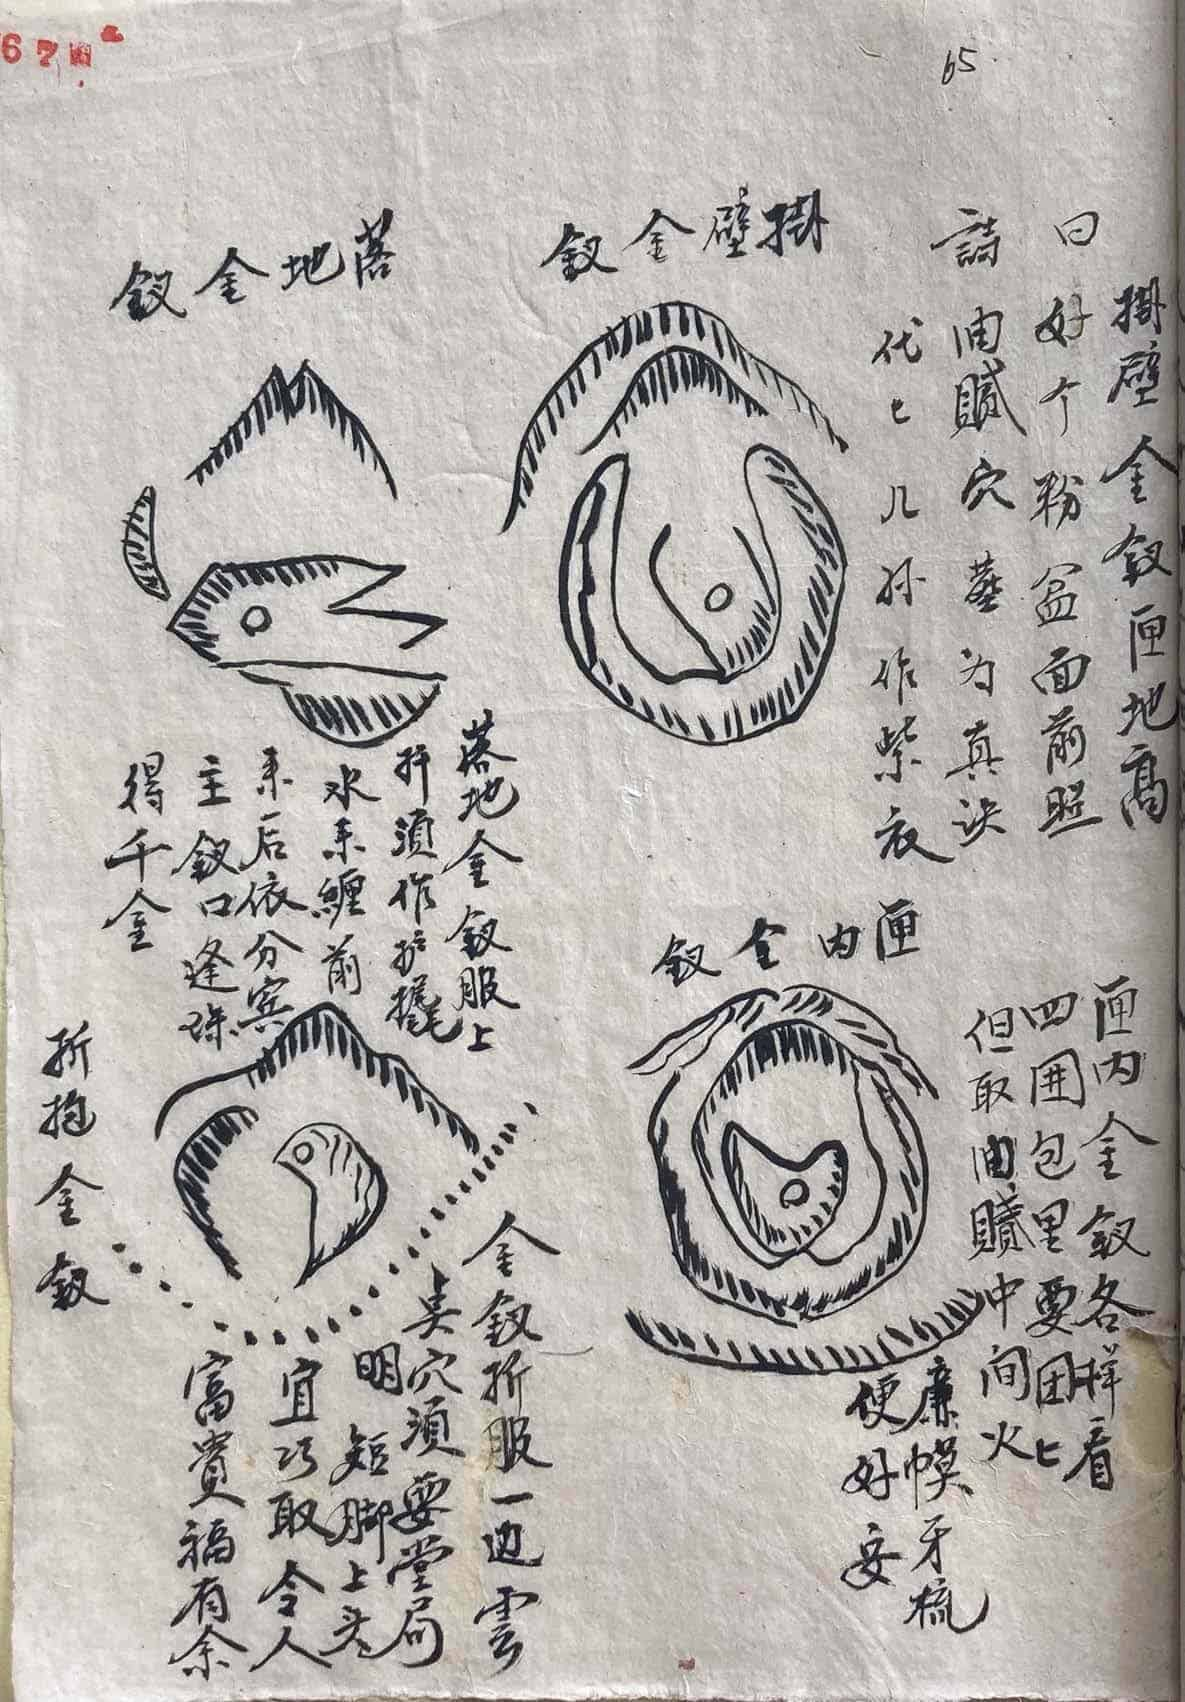 65
掛壁金釵
詩曰
掛壁金釵匣地高
好个粉盆面前照
油膩穴葬为真诀
代匕儿孙作紫衣
落地金釵
落地金釵股上
扦須作护撬
水来纏前
来后依分宾
主釵口逢珠
得千金
匣内金釵
匣内金釵各样看
四囲包里要团匕
但取油膩中间火
廉幙牙梳
便好安
折抱金釵
金釵折股一边云
奌穴須要堂局
明短脚上头
宜巧取令人
富貴福有余